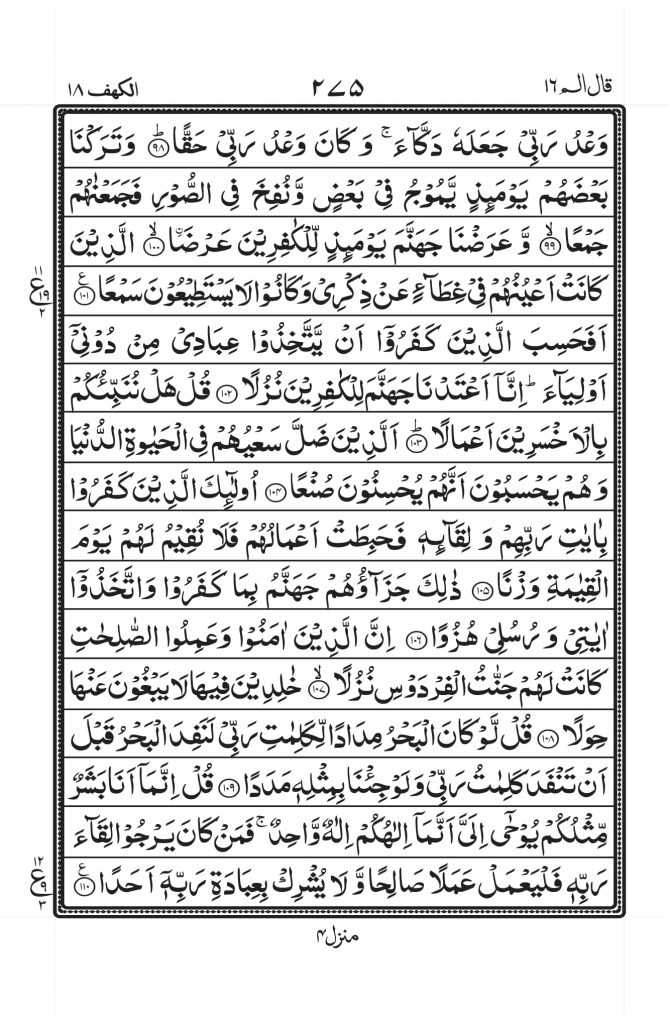 قال الم ١٦ ٢٧٥ الكهف ١٨
وَعْدُ رَبِّیْ جَعَلَهٗ دَكَّآءَ ۚ وَ كَانَ وَعْدُ رَبِّیْ حَقًّا ؕ﴿۹۸﴾ وَ تَرَكْنَا
بَعْضَهُمْ یَوْمَىِٕذٍ یَّمُوْجُ فِیْ بَعْضٍ وَّ نُفِخَ فِی الصُّوْرِ فَجَمَعْنٰهُمْ
جَمْعًا ۙ﴿۹۹﴾ وَّ عَرَضْنَا جَهَنَّمَ یَوْمَىِٕذٍ لِّلْكٰفِرِیْنَ عَرْضَا ۙ﴿۱۰۰﴾ الَّذِیْنَ
كَانَتْ اَعْیُنُهُمْ فِیْ غِطَآءٍ عَنْ ذِكْرِیْ وَ كَانُوْا لَا یَسْتَطِیْعُوْنَ سَمْعًا ﴿۱۰۱﴾ ع
١١ ع ١٩ ٢
اَفَحَسِبَ الَّذِیْنَ كَفَرُوْۤا اَنْ یَّتَّخِذُوْا عِبَادِیْ مِنْ دُوْنِیْۤ
اَوْلِیَآءَ ؕ اِنَّاۤ اَعْتَدْنَا جَهَنَّمَ لِلْكٰفِرِیْنَ نُزُلًا ﴿۱۰۲﴾ قُلْ هَلْ نُنَبِّئُكُمْ
بِالْاَخْسَرِیْنَ اَعْمَالًا ؕ﴿۱۰۳﴾ اَلَّذِیْنَ ضَلَّ سَعْیُهُمْ فِی الْحَیٰوةِ الدُّنْیَا
وَ هُمْ یَحْسَبُوْنَ اَنَّهُمْ یُحْسِنُوْنَ صُنْعًا ﴿۱۰۴﴾ اُولٰٓىِٕكَ الَّذِیْنَ كَفَرُوْا
بِاٰیٰتِ رَبِّهِمْ وَ لِقَآىِٕهٖ فَحَبِطَتْ اَعْمَالُهُمْ فَلَا نُقِیْمُ لَهُمْ یَوْمَ
الْقِیٰمَةِ وَزْنًا ﴿۱۰۵﴾ ذٰلِكَ جَزَآؤُهُمْ جَهَنَّمُ بِمَا كَفَرُوْا وَ اتَّخَذُوْۤا
اٰیٰتِیْ وَ رُسُلِیْ هُزُوًا ﴿۱۰۶﴾ اِنَّ الَّذِیْنَ اٰمَنُوْا وَ عَمِلُوا الصّٰلِحٰتِ
كَانَتْ لَهُمْ جَنّٰتُ الْفِرْدَوْسِ نُزُلًا ۙ﴿۱۰۷﴾ خٰلِدِیْنَ فِیْهَا لَا یَبْغُوْنَ عَنْهَا
حِوَلًا ﴿۱۰۸﴾ قُلْ لَّوْ كَانَ الْبَحْرُ مِدَادًا لِّكَلِمٰتِ رَبِّیْ لَنَفِدَ الْبَحْرُ قَبْلَ
اَنْ تَنْفَدَ كَلِمٰتُ رَبِّیْ وَ لَوْ جِئْنَا بِمِثْلِهٖ مَدَدًا ﴿۱۰۹﴾ قُلْ اِنَّمَاۤ اَنَا بَشَرٌ
مِّثْلُكُمْ یُوْحٰۤی اِلَیَّ اَنَّمَاۤ اِلٰهُكُمْ اِلٰهٌ وَّاحِدٌ ۚ فَمَنْ كَانَ یَرْجُوْا لِقَآءَ
رَبِّهٖ فَلْیَعْمَلْ عَمَلًا صَالِحًا وَّ لَا یُشْرِكْ بِعِبَادَةِ رَبِّهٖۤ اَحَدًا ﴿۱۱۰﴾ ع
١٢ ع ٩ ٣
منزل ۴